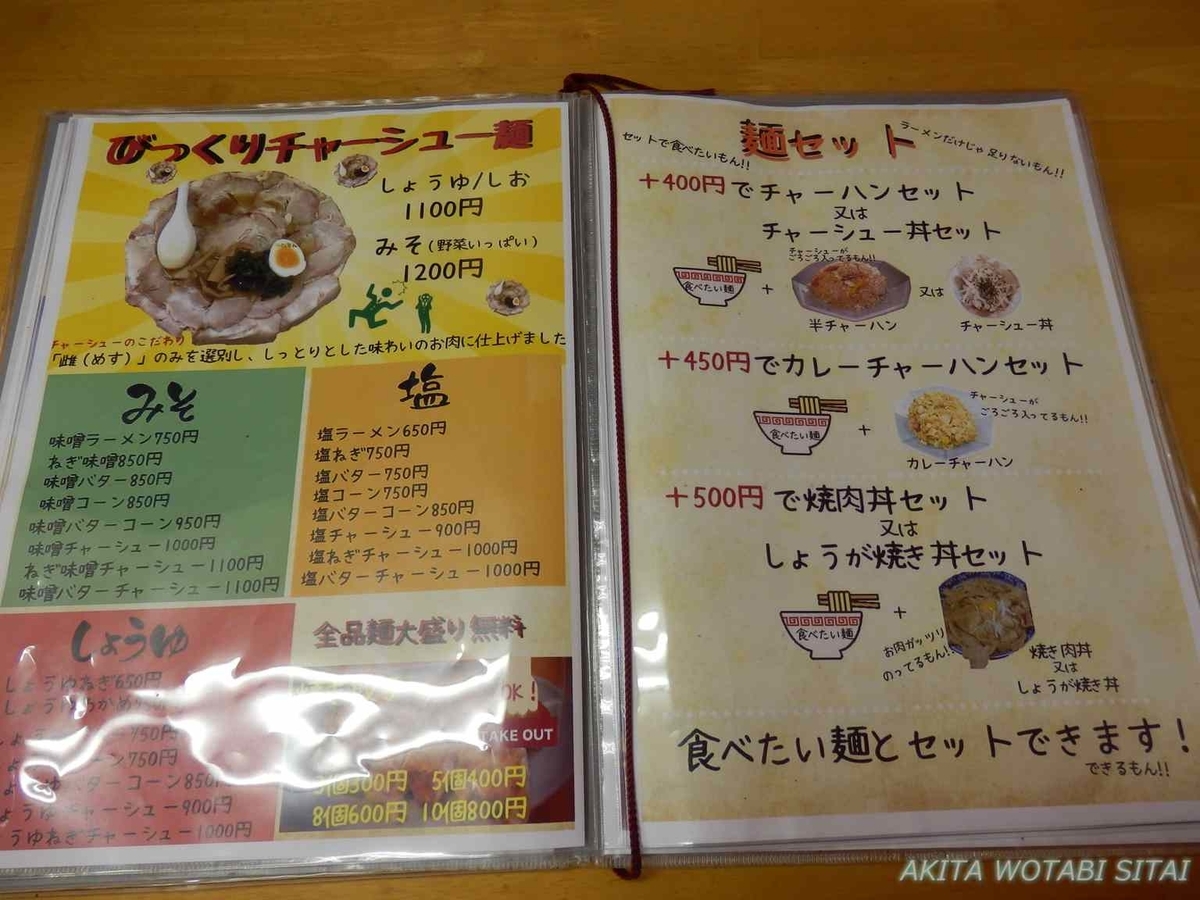 びっくりチャーシュー麺
しょうゆ/しお
1100円
みそ(野菜いっぱい)
1200円
チャーシューのこだわり
「雌(めす)」のみを選別し、しっとりとした味わいのお肉に仕上げました
みそ
味噌ラーメン750円
ねぎ味噌850円
味噌バター850円
味噌コーン850円
味噌バターコーン950円
味噌チャーシュー1000円
ねぎ味噌チャーシュー1100円
味噌バターチャーシュー1100円
塩
塩ラーメン650円
塩ねぎ750円
塩バター750円
塩コーン750円
塩バターコーン850円
塩チャーシュー900円
塩ねぎチャーシュー1000円
塩バターチャーシュー1000円
しょうゆ
しょうゆねぎ650円
750円
ン750円
バターコーン850
ょうゆチャーシュー900円
うゆねぎチャーシュー1000円
全品麺大盛り無料
OK!
TAKE OUT
個300円 5個400円
8個600円 10個800円
麺セット
セットで食べたいもん!!
ラーメンだけじゃ足りないもん!!
+400円でチャーハンセット
又は
チャーシュー丼セット
チャーシューが
ごろごろ入ってるもん!!
食べたい麺
+
又は
半チャーハン
チャーシュー丼
+450円でカレーチャーハンセット
チャーシューが
ごろごろ入ってるもん!!
食べたい麺
+
カレーチャーハン
+500円で焼肉丼セット
又は
しょうが焼き丼セット
食べたい麺
+
お肉ガッツリ
のってるもん!
焼き肉丼
又は
しょうが焼き丼
食べたい麺とセットできます!
できるもん!!
AKITA WOTABI SITAI